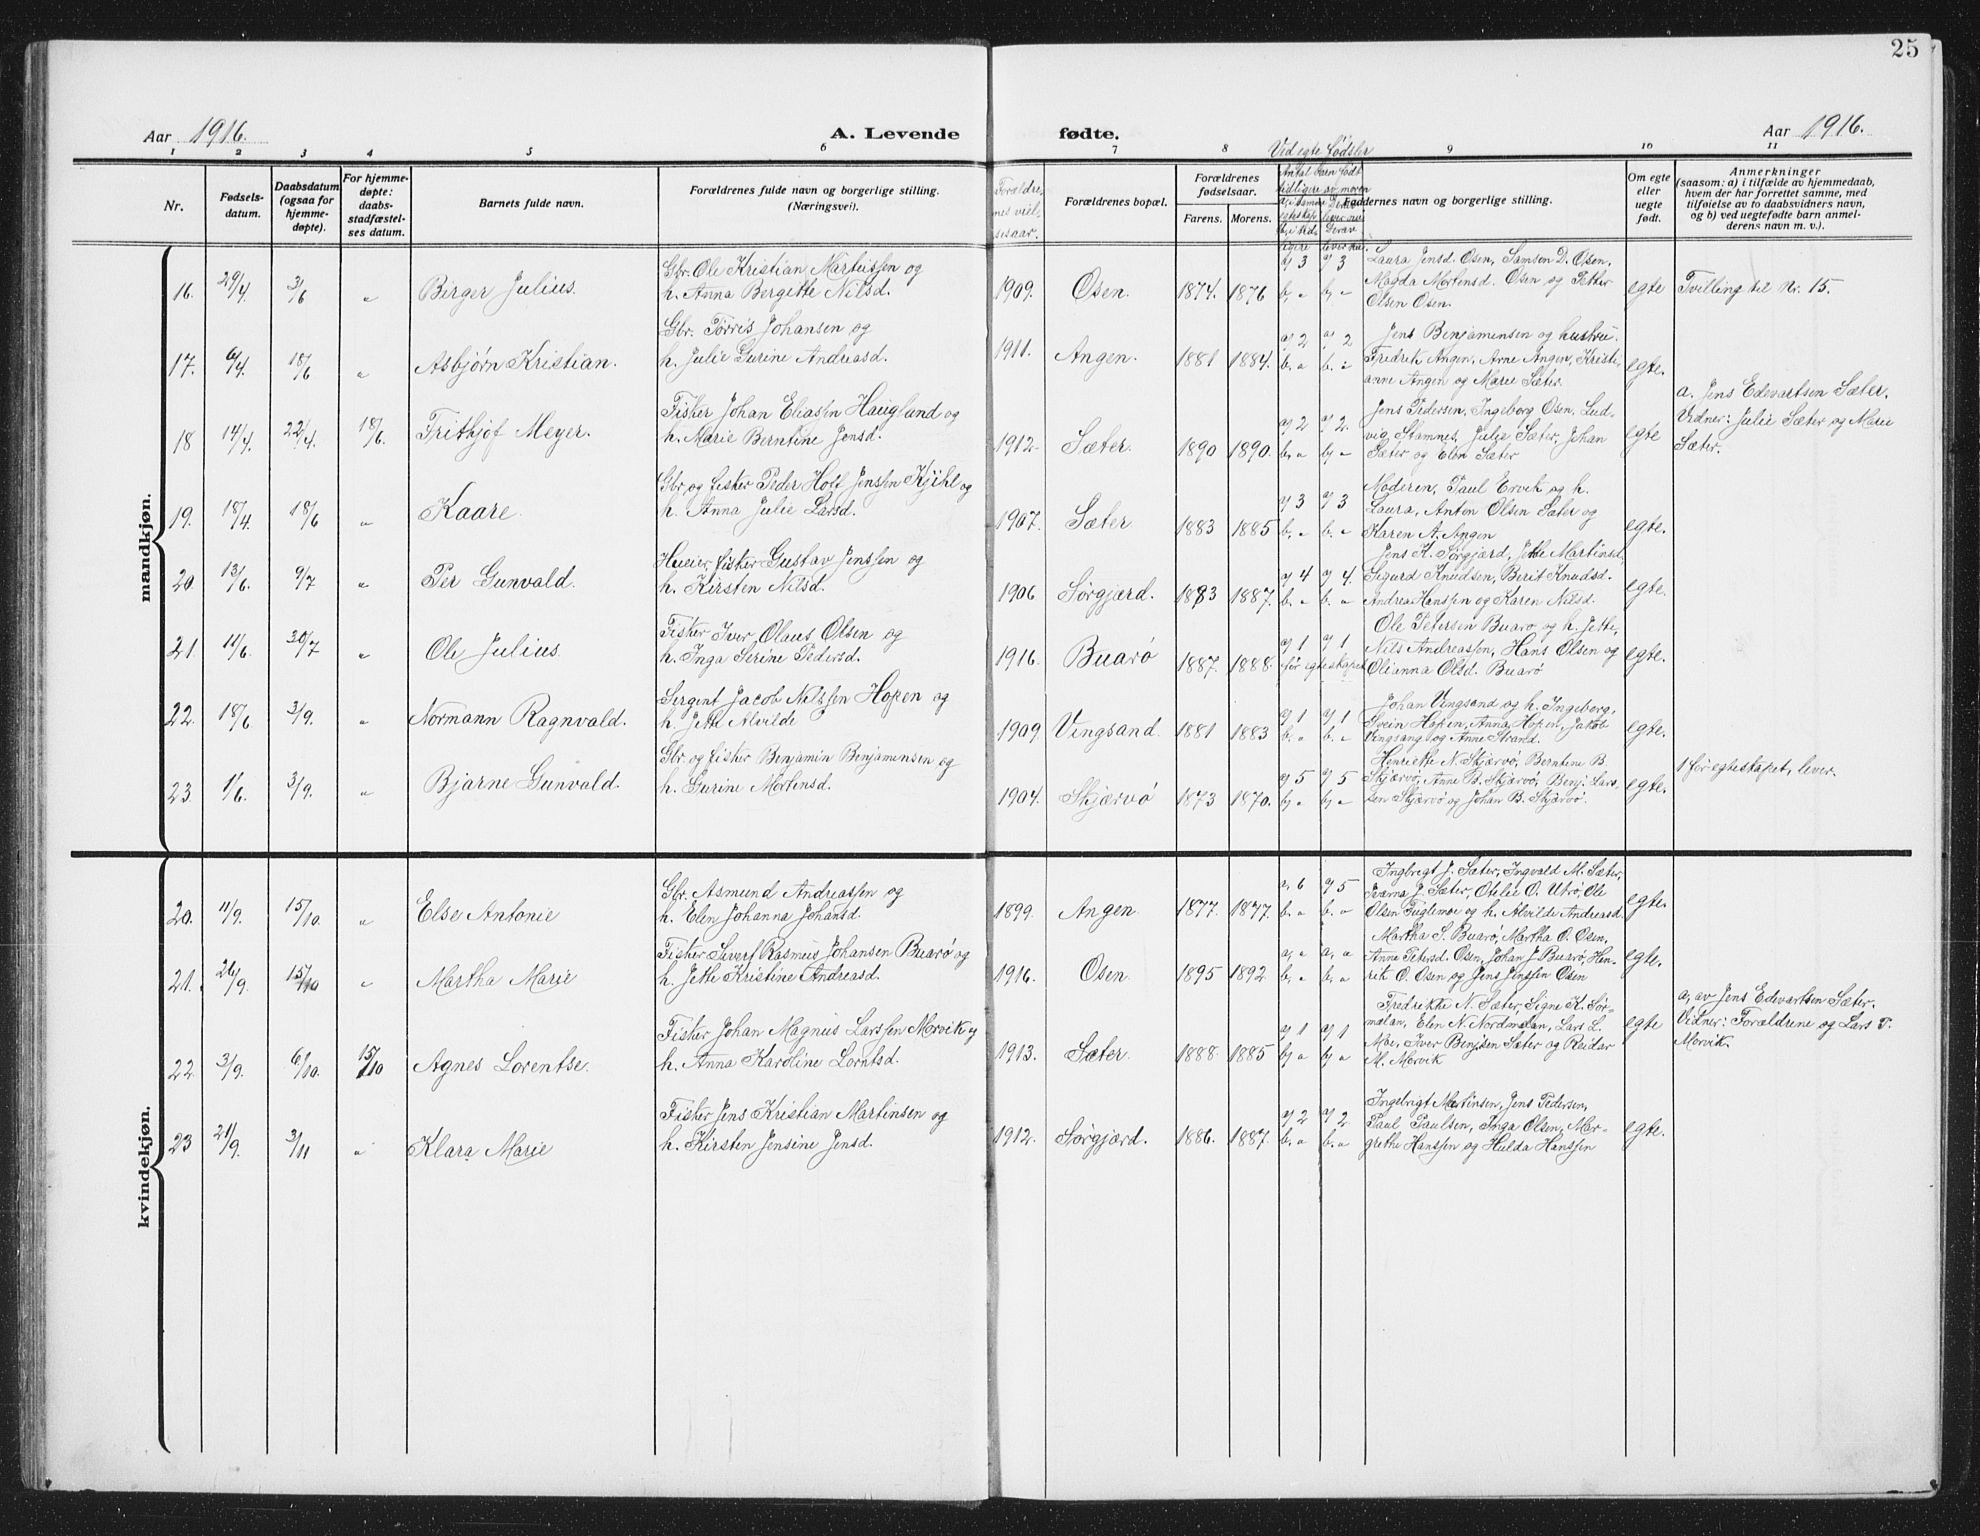 25
Aar 1916.
A. Levende
fødte.
Aar 1916.
1 2 3 4 5 6 7 8 Ved egte fødsler 9 10 11
Nr.
Fødsels-
datum.
Daabsdatum
(ogsaa for
hjemme-
døpte).
For hjemme-
døpte:
daabs-
stadfæstel-
ses datum.
Barnets fulde navn.
Forældrenes fulde navn og borgerlige stilling.
(Næringsvei).
Forældre-
nes viel-
sesaar.
Forældrenes bopæl.
Forældrenes
fødselsaar.
Farens. Morens.
Antal barn født
tidligere av moren
Faddernes navn og borgerlige stilling.
Om egte
eller
uegte
født.
Anmerkninger
(saasom: a) i tilfælde av hjemmedaab,
hvem der har forrettet samme, med
tilføielse av to daabsvidners navn,
og b) ved uegtefødte barn anmel-
derens navn m. v.).
mandkjøn.
16. 29/4. 3/6 " Birger Julius.
Gbr. Ole Kristian Martinssen og
h. Anna Bergitte Nilsd.
1909. Osen. 1874. 1876
a) 3 a) 3
b) " b) "
Laura Jensd. Osen, Samson D. Osen,
Magda Mortensd. Osen og Petter
Olsen Osen.
egte
Tvilling til Nr. 15.
17. 6/4. 18/6 " Asbjørn Kristian.
Gbr. Tørris Johansen og
h. Julie Gurine Andreasd.
1911. Angen. 1881 1884.
a) 2 a) 2
b. " b. "
Jens Benjaminsen og hustru
Fredrik Angen, Arne Angen, Kristi-
anne Angen og Marie Sæter.
egte.
18 14/4. 22/4. 18/6. Frithjof Meyer.
Fisker Johan Eliassen Haugland og
h. Marie Berntine Jensd.
1912. Sæter. 1890 1890.
a) 2 a) 2.
b) " b) "
Jens Pedersen, Ingeborg Osen, Lud-
vig Stamnes, Julie Sæter, Johan
Sæter og Elen Sæter
egte
a. Jens Edvartsen Sæter.
Vidner: Julie Sæter og Marie
Sæter.
19. 18/4. 18/6 " Kaare.
Gbr. og fisker Peder Holt Jenssen Kjihl og
h. Anna Julie Larsd.
1907. Sæter 1883 1885
a) 3 a) 3
b. " b. "
Moderen, Paul Ervik og h.
Laura, Anton Olsen Sæter og
Karen A. Angen
egte.
20. 13/6. 9/7 " Per Gunvald.
fisker Gustav Jenssen og
h. Kirsten Nilsd.
1906 Sørgjærd. 1883 1887.
a) 4 a) 4.
b. " b. "
Jens K. Sørgjærd, Jette Martinsd,
Sigurd Knudsen, Berit Knudsd.
Andrea Hanssen og Karen Nilsd.
egte.
21 11/6. 30/7 " Ole Julius
Fisker Iver Olaus Olsen og
h. Inga Serine Pedersd.
1916. Buarø 1887. 1888.
a) 1 a) 1
før egteskapet
Ole Petersen Buarø og h. Jette,
Nils Andreassen, Hans Olsen og
Olianna Olsd. Buarø
egte.
22. 18/6 3/9. " Normann Ragnvald.
Sergent Jacob Nilssen Hopen og
h. Jette Alvilde
1909 Vingsand. 1881 1883
a) 1 a) 1
b. " b. "
Johan Vingsand og h. Ingeborg,
Svein Hopen, Anna Hopen, Jakob
Vingsang og Anne Strand.
egte.
23. 1/6. 3/9. " Bjarne Gunvald.
Gbr. og fisker Benjamin Benjaminsen og
h. Gurine Mortensd.
1904. Skjærvø 1873 1870.
a) 5 a) 5
b) " b) "
Henriette N. Skjærvø, Berntine B.
Skjærvø, Anne B. Skjærvø, Benj. Lars-
sen Skjærvø og Johan B. Skjærvø.
egte.
1 før egteskapet, lever.
kvindekjøn.
20. 11/9. 15/10. " Else Antonie
Gbr. Asmund Andreassen og
h. Elen Johanna Johansd.
1899. Angen. 1877. 1877.
a) 6 a) 5
b. " b. "
Ingbrigt J. Sæter, Ingvald M. Sæter,
Iverna J. Sæter, Otelie O. Utrø, Ole
Olsen Fuglemoe og h. Alvilde Andreasd.
egte.
21. 26/9. 15/10 " Martha Marie
Fisker Sivert Rasmus Johansen Buarø og
h. Jette Kristine Andreasd.
1916. Osen. 1895 1892
a) " a) "
b. " b. "
Martha S. Buarø, Martha O. Osen,
Anne Petersd. Osen, Johan J. Buarø, Hen-
rik O. Osen og Jens Jenssen Osen
egte.
22 3/9. 6/10. 15/10 Agnes Lorentse.
Fisker Johan Magnus Larssen Morvik og
h. Anna Karoline Lorntsd.
1913. Sæter. 1888. 1885
a) 1 a) 1
b) " b) "
Fredrikke N. Sæter, Signe K. Sør-
mælan, Elen N. Nordmelan, Lars L.
Moe, Iver Benjsen Sæter og Reidar
M. Morvik
egte
a, av Jens Edvartsen Sæter.
Vidner: Forældrene og Lars P.
Morvik.
23 21/9. 3/11 " Klara Marie
Fisker Jens Kristian Martinsen og
h. Kirsten Jensine Jensd.
1912. Sørgjærd. 1886. 1887.
a) 2 a) 2
b. " b. "
Ingebrigt Martinsen, Jens Pedersen,
Paul Paulsen, Inga Olsen, Mar-
grethe Hanssen og Hulda Hanssen
egte.